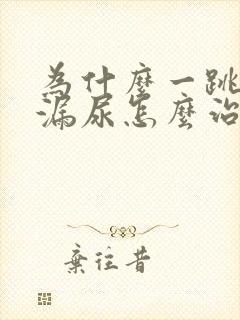 为什麼一跳
漏尿怎麼治
棄往昔